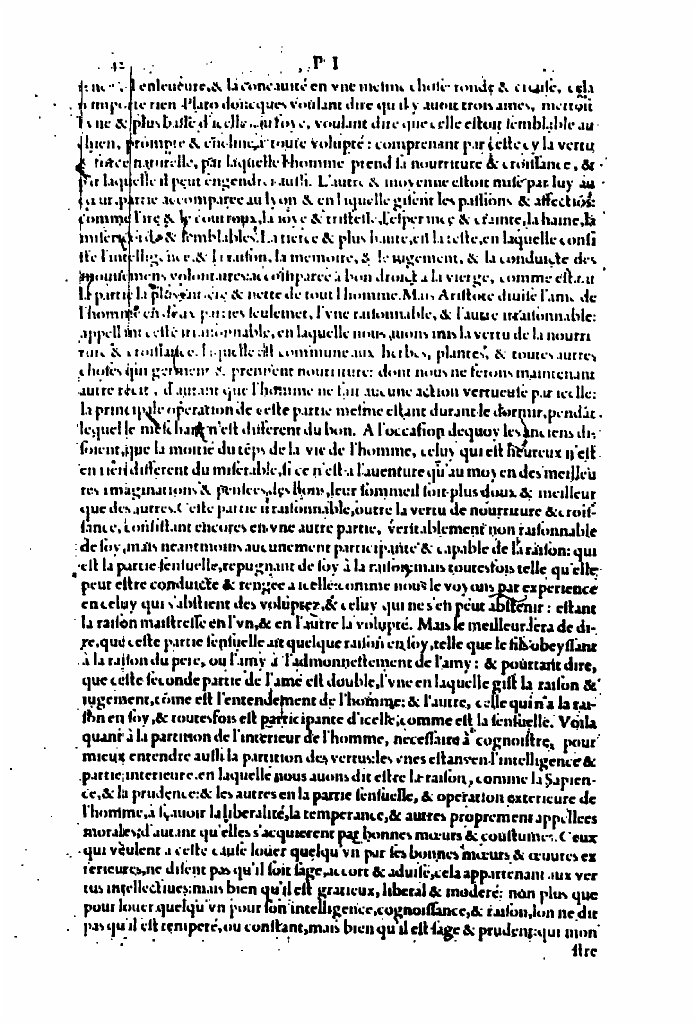 42 P I
l'enleueure, & la concauité en vne mesme chose ronde & creuse, cela
n'importe rien. Plato doncques voulant dire qu'il y auoit trois ames, mettoit
l'vne & plus basse d'icelle au foye, voulant dire que celle estoit semblable au
chien, prompte & encline à toute volupté: comprenant par ceste cy la vertu
& force naturelle, par laquelle l'homme prend sa nourriture & croissance, &
par laquelle il peut engendrer aussi. L'autre & moyenne estoit mise par luy au
cœur, partie accomparee au lyon & en laquelle gisent les passions & affections:
comme l'ire & le courroux, la ioye & tristesse, l'esperance & crainte, la haine, la
misericorde & semblables. La tierce & plus haute, est la teste, en laquelle consi
ste l'intelligence, & la raison, la memoire, & le iugement, & la conduicte des
mouuemens volontaires: accomparee à bon droict à la vierge, comme estant
la partie la plus entiere & nette de tout l'homme. Mais Aristote diuise l'ame de
l'homme en deux parties seulement, l'vne raisonnable, & l'autre irraisonnable:
appellant ceste irraisonnable, en laquelle nous auons mis la vertu de la nourri
ture & croissance, laquelle est commune aux herbes, plantes, & toutes autres
choses qui germent & prennent nourriture: dont nous ne ferons maintenant
autre recit, d'autant que l'homme ne fait aucune action vertueuse par icelle:
la principale operation de ceste partie mesme estant durant le dormir, pendāt
lequel le meschant n'est different du bon. A l'occasion dequoy les anciens di-
soient, que la moitié du tēps de la vie de l'homme, celuy qui est heureux n'est
en riē different du miserable, si ce n'est à l'auenture qu'au moyen des meilleu
res imaginations & pensees des bons, leur sommeil soit plus doux & meilleur
que des autres. Ceste partie irraisonnable, outre la vertu de nourriture & crois-
sance, consistant encores en vne autre partie, veritablement non raisonnable
de soy, mais neantmoins aucunement participante & capable de la raison: qui
est la partie sensuelle, repugnant de soy à la raison, mais toutesfois telle qu'elle
peut estre conduicte & rengee a icelle: comme nous le voyons par experience
en celuy qui s'abstient des voluptez, & celuy qui ne s'en peut abstenir: estant
la raison maistresse en l'vn, & en l'autre la volupté. Mais le meilleur sera de di-
re, que ceste partie sensuelle ait quelque raison en soy, telle que le fils obeyssant
à la raison du pere, ou l'amy à l'admonnestement de l'amy: & pourtant dire,
que ceste seconde partie de l'ame est double, l'vne en laquelle gist la raison &
iugement, cōme est l'entendement de l'homme: & l'autre, celle qui n'a la rai-
son en soy, & toutesfois est participante d'icelle, comme est la sensuelle. Voila
quant à la partition de l'interieur de l'homme, necessaire à cognoistre, pour
mieux entendre aussi la partition des vertus: les vnes estans en l'intelligence &
partie interieure, en laquelle nous auons dit estre la raison, comme la Sapien-
ce, & la prudence: & les autres en la partie sensuelle, & operation exterieure de
l'homme, à sçauoir la liberalité, la temperance, & autres proprement appellees
morales, d'autant qu'elles s'acquierent par bonnes mœurs & coustumes. Ceux
qui veulent a ceste cause louer quelqu'vn par ses bonnes mœurs & œuures ex
terieures, ne disent pas qu'il soit sage, accort & aduisé, cela appartenant aux ver
tus intellectiues: mais bien qu'il est gratieux, liberal & moderé: non plus que
pour louer quelqu'vn pour son intelligence, cognoissance, & raison, lon ne dit
pas qu'il est temperé, ou constant, mais bien qu'il est sage & prudent: qui mon
stre